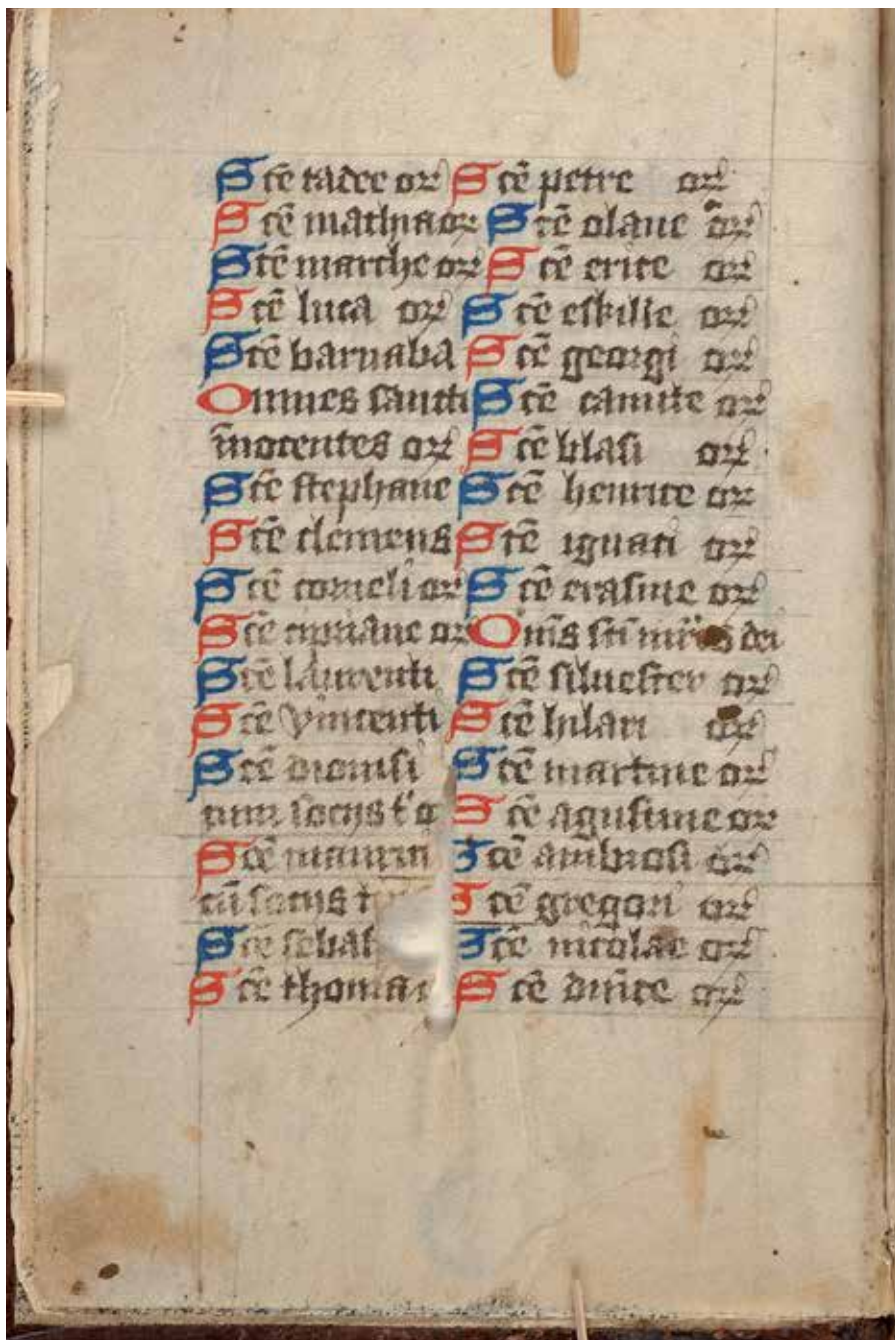 Scē tadee orꝫ
Scē mathia orꝫ
Scē marche orꝫ
Scē luca orꝫ
Scē barnaba
Omnes sancti
īnocentes orꝫ
Scē stephane
Scē clemens
Scē corneli orꝫ
Scē cipriane orꝫ
Scē laurenti
Scē vincenti
Scē dionisi
cum socijs t' o
Scē maurici
cū socijs
Scē sebas
Scē thoma
Scē petre orꝫ
Scē olaue orꝫ
Scē erice orꝫ
Scē eskille orꝫ
Scē georgi orꝫ
Scē canute orꝫ
Scē blasi orꝫ
Scē henrice orꝫ
Scē ignati orꝫ
Scē erasme orꝫ
Om̄s sc̄i dei
Scē siluester orꝫ
Scē hilari orꝫ
Scē martine orꝫ
Scē agustine orꝫ
Scē ambrosi orꝫ
Scē gregori orꝫ
Scē nicolae orꝫ
Scē orꝫ